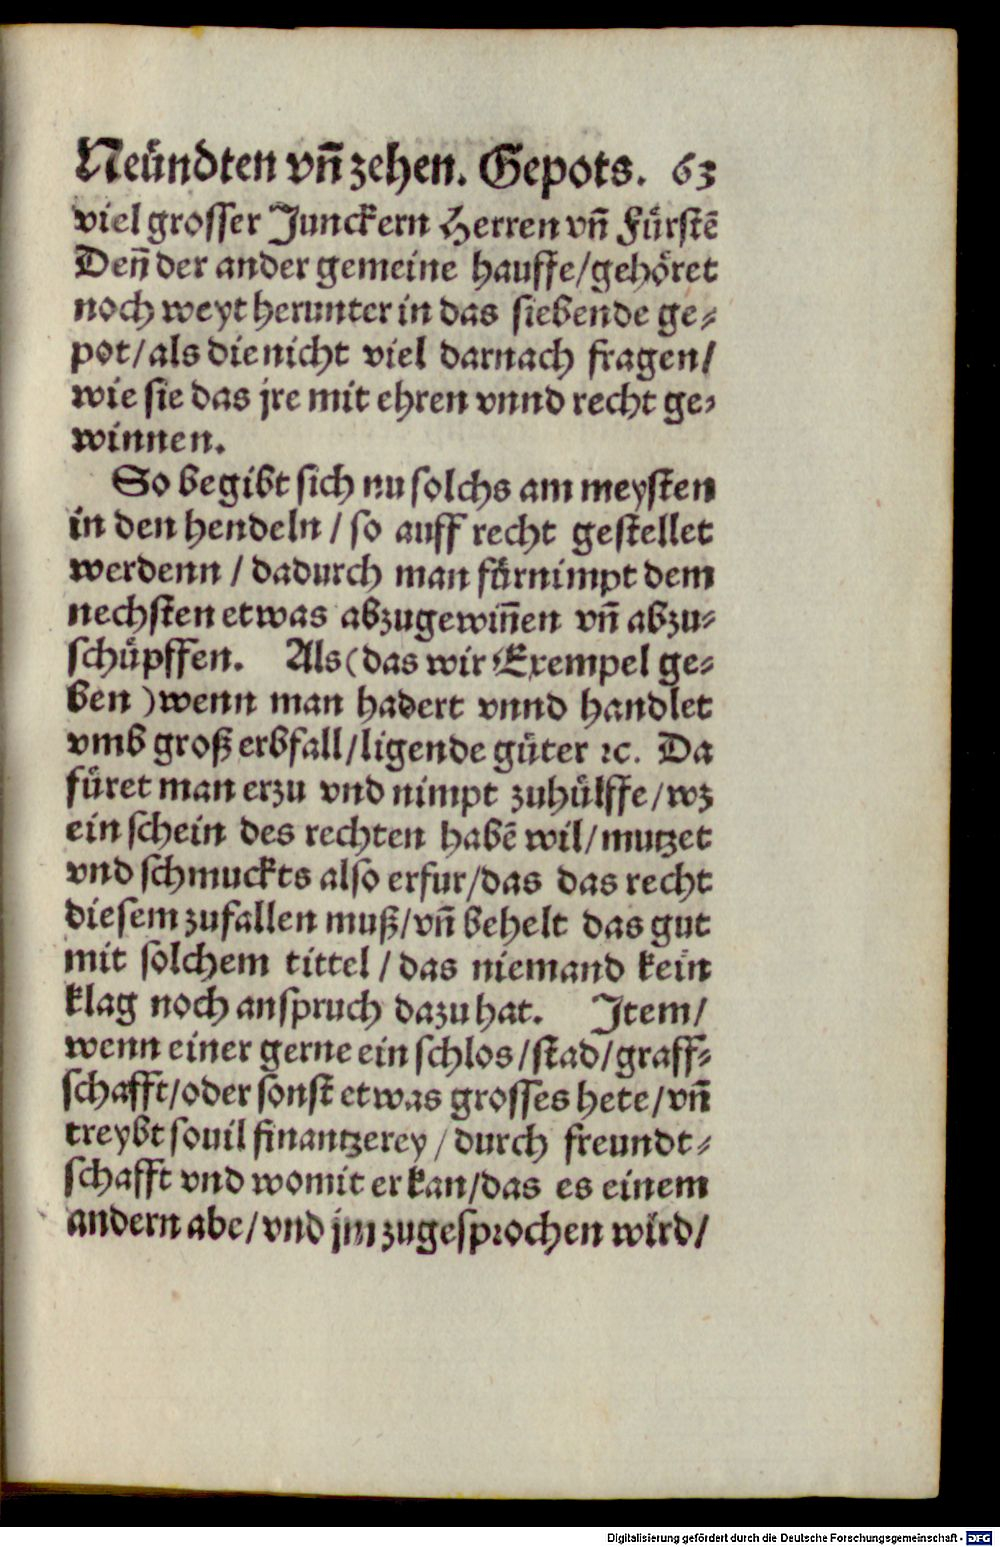 Neündten vn̄ zehen. Gepots. 63
viel grosser Junckern Herren vn̄ Fürstē
Den̄ der ander gemeine hauffe/gehöret
noch weyt herunter in das siebende ge⸗
pot/als die nicht viel darnach fragen/
wie sie das jre mit ehren vnnd recht ge⸗
winnen.
So begibt sich nu solchs am meysten
in den hendeln / so auff recht gestellet
werdenn / dadurch man fürnimpt dem
nechsten etwas abzugewin̄en vn̄ abzu⸗
schüpffen. Als (das wir Exempel ge⸗
ben ) wenn man hadert vnnd handlet
vmb groß erbfall/ligende güter ꝛc. Da
füret man erzu vnd nimpt zuhülffe/wz
ein schein des rechten habē wil/mutzet
vnd schmuckts also erfur/das das recht
diesem zufallen muß/vn̄ behelt das gut
mit solchem tittel / das niemand kein
klag noch anspruch dazu hat. Item/
wenn einer gerne ein schlos/stad/graff⸗
schafft/oder sonst etwas grosses hete/vn̄
treybt souil finantzerey / durch freundt⸗
schafft vnd womit er kan/das es einem
andern abe/vnd jm zugesprochen wird/
Digitalisierung gefördert durch die Deutsche Forschungsgemeinschaft - DFG